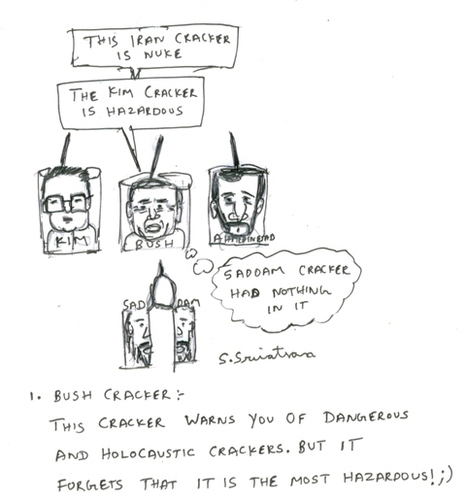 THIS IRAN CRACKER
IS NUKE
THE KIM CRACKER
IS HAZARDOUS
KIM
BUSH
AHMEDINEJAD
SADDAM CRACKER
HAD NOTHING
IN IT
SAD DAM
S.Srivatsava
1. BUSH CRACKER :-
THIS CRACKER WARNS YOU OF DANGEROUS
AND HOLOCAUSTIC CRACKERS. BUT IT
FORGETS THAT IT IS THE MOST HAZARDOUS! ;)